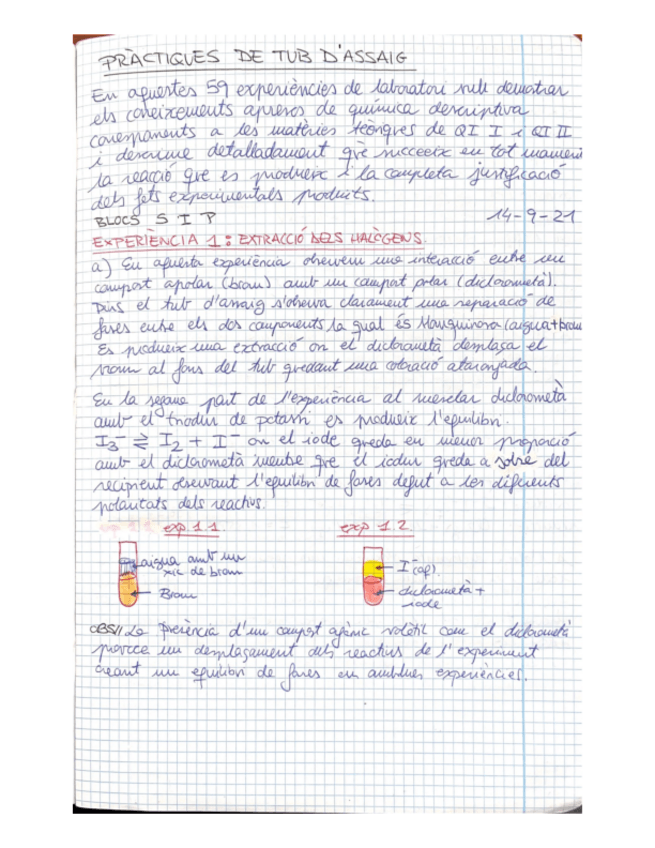 PRÀCTIQUES DE TUB D'ASSAIG
En aquestes 59 experiències de laboratori vull demostrar
els coneixements apresos de química descriptiva
corresponents a les matèries teòriques de QI I i QI II
i descriure detalladament què succeeix en tot moment
la reacció que es produeix i la completa justificació
dels fets experimentals produïts.
BLOCS S I P 14-9-21
EXPERIÈNCIA 1: EXTRACCIÓ DELS HALÒGENS.
a) En aquesta experiència observem una interacció entre un
compost apolar (brom) amb un compost polar (diclorometà).
Dins el tub d'assaig s'observa clarament una separació de
fases entre els dos components la qual és (aigua+brom
Es produeix una extracció on el diclorometà desplaça el
brom al fons del tub quedant una coloració ataronjada.
En la segona part de l'experiència al mesclar diclorometà
amb el triodur de potassi es produeix l'equilibri.
I₃⁻ ⇄ I₂ + I⁻ on el iode queda en menor proporció
amb el diclorometà mentre que el iodur queda a sobre del
recipient observant l'equilibri de fases degut a les diferents
polaritats dels reactius.
exp 1.1. exp 1.2.
aigua amb un
xic de brom
Brom
I⁻(aq).
diclorometà +
iode
OBS// La presència d'un compost orgànic volàtil com el diclorometà
provoca un desplaçament dels reactius de l'experiment
creant un equilibri de fases en ambdues experiències.